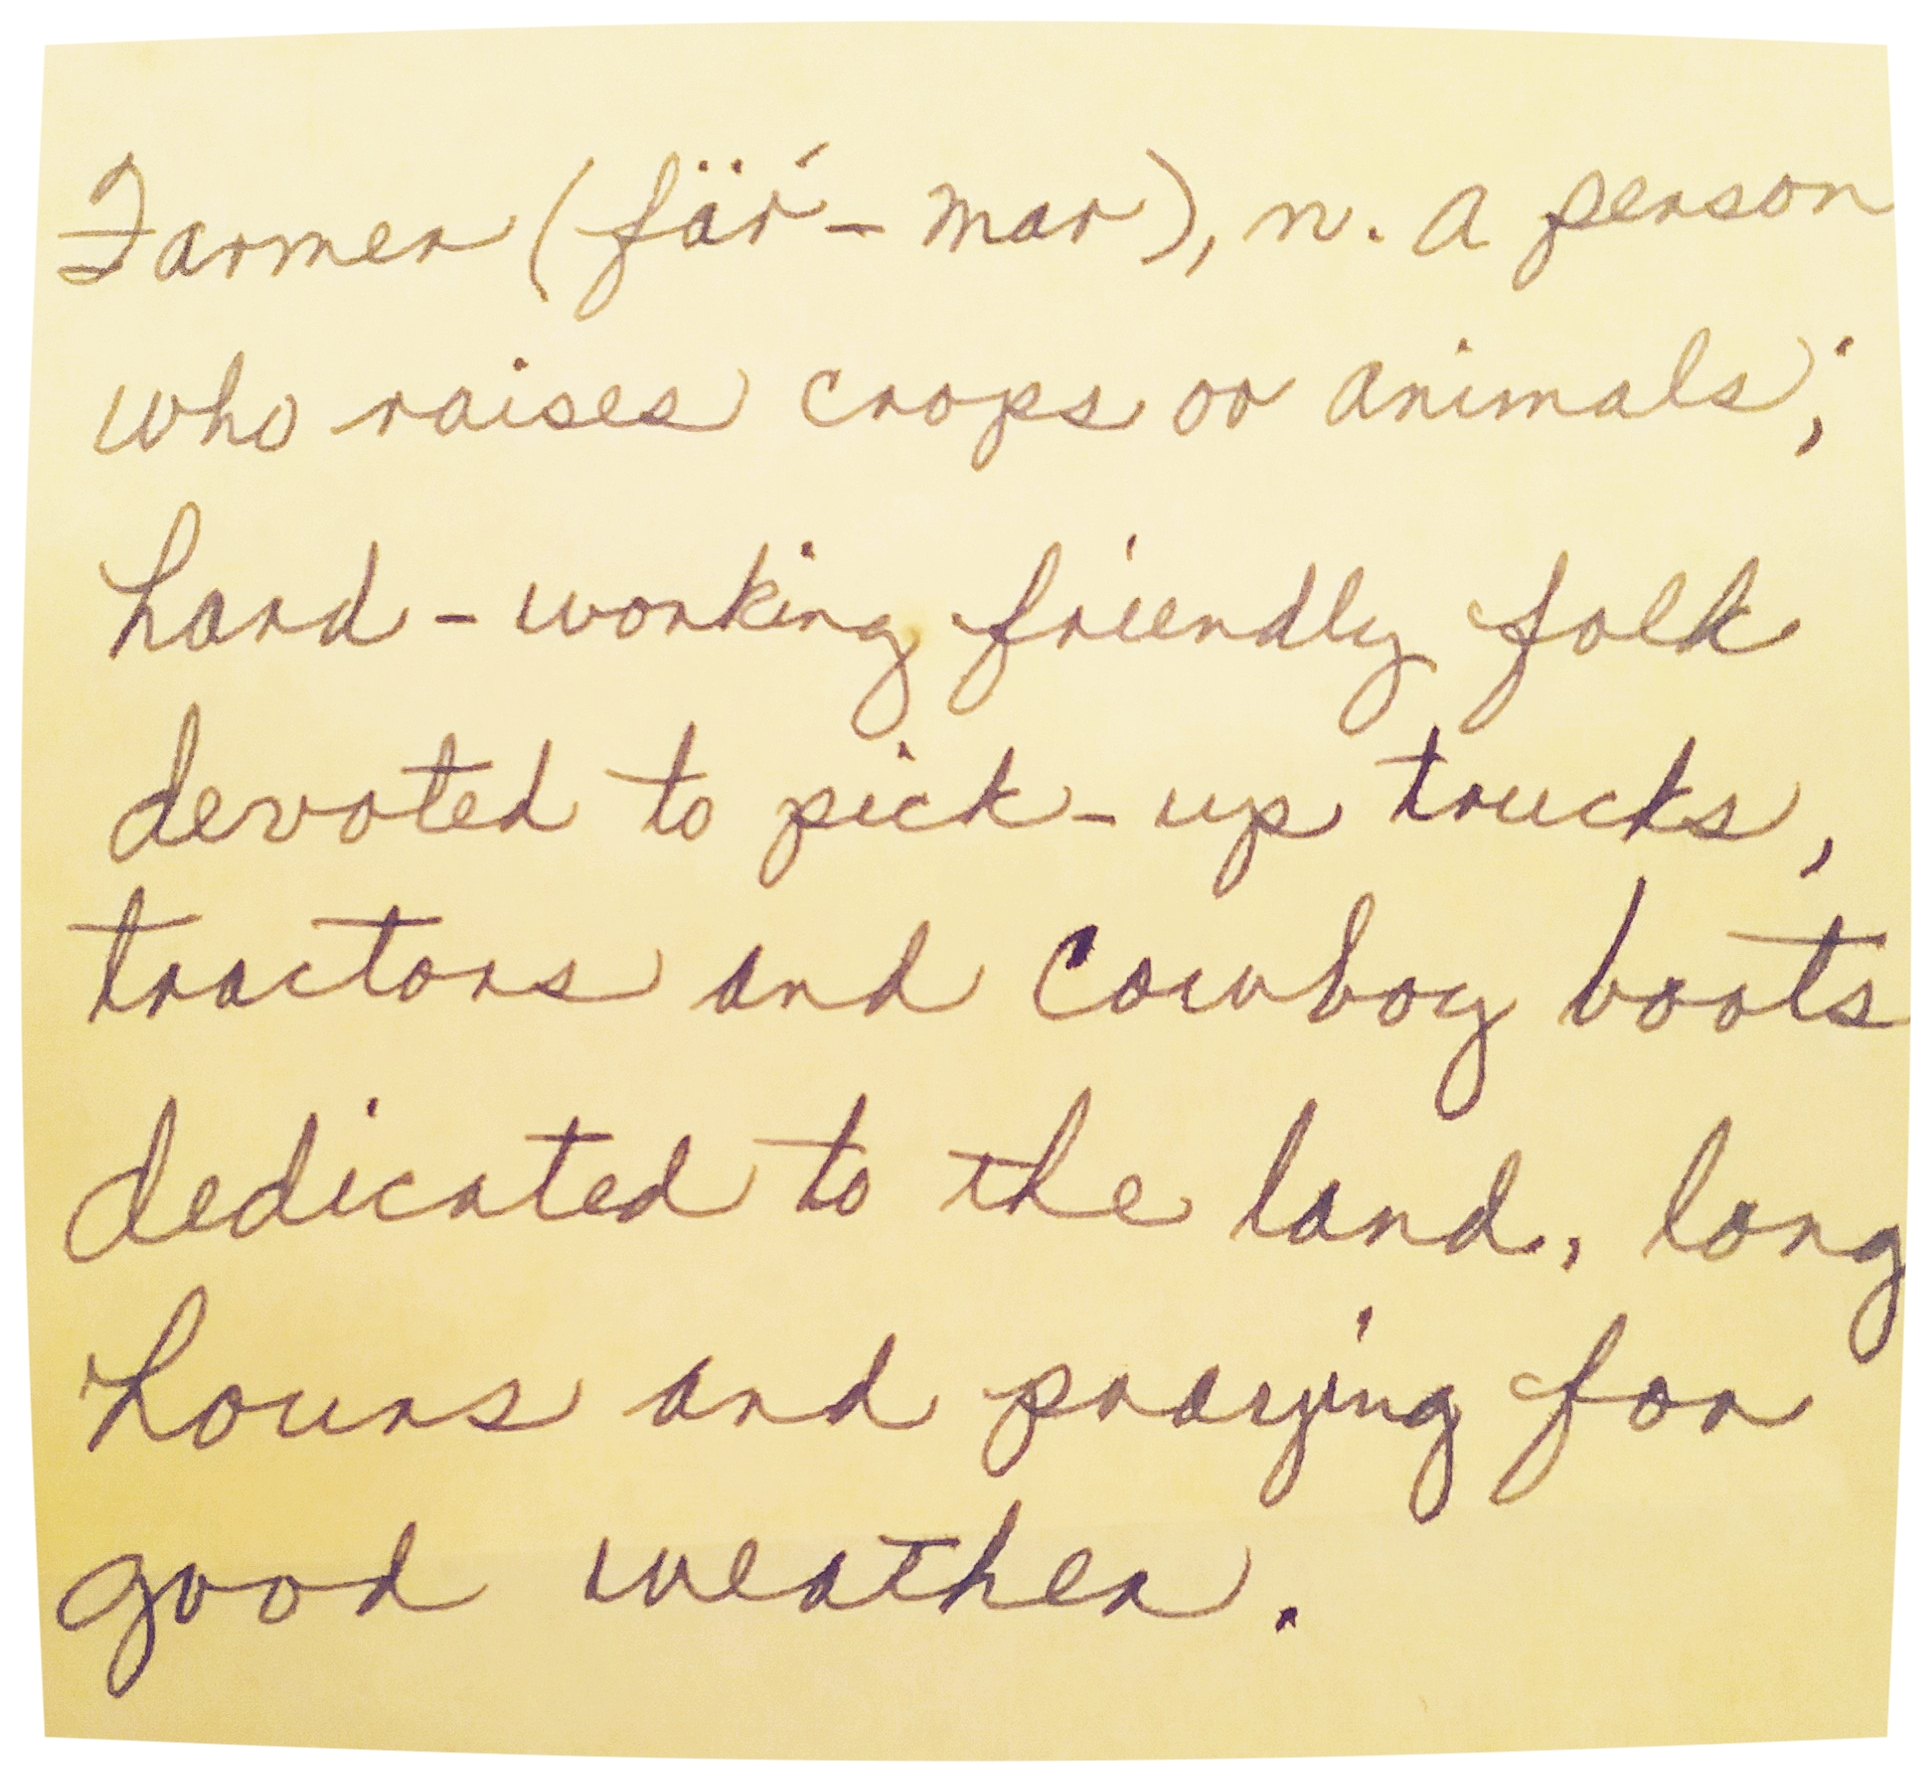 Farmer (fär´- mar), n. a person
who raises crops or animals;
hard-working friendly folk
devoted to pick-up trucks,
tractors and cowboy boots
dedicated to the land, long
hours and praying for
good weather.